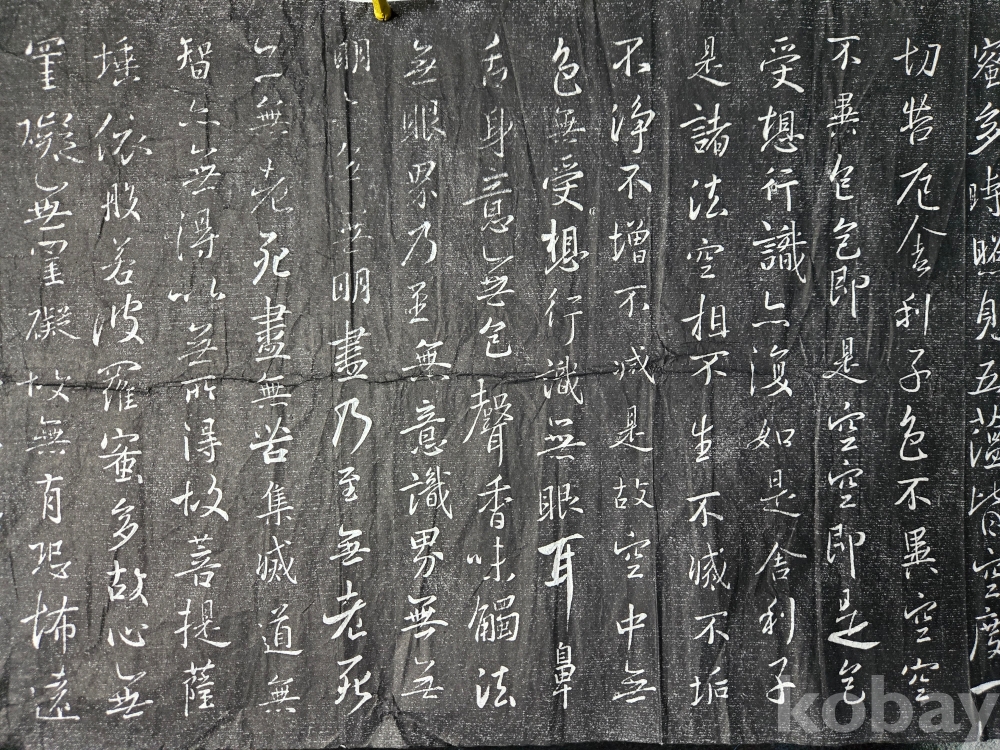 蜜多時照見五蘊皆空度一
切苦厄舍利子色不異空空
不異色色即是空空即是色
受想行識亦復如是舍利子
是諸法空相不生不滅不垢
不淨不增不減是故空中無
色無受想行識無眼耳鼻
舌身意無色聲香味觸法
無眼界乃至無意識界無無
明亦無無明盡乃至無老死
亦無老死盡無苦集滅道無
智亦無得以無所得故菩提薩
埵依般若波羅蜜多故心無
罣礙無罣礙故無有恐怖遠
kobay